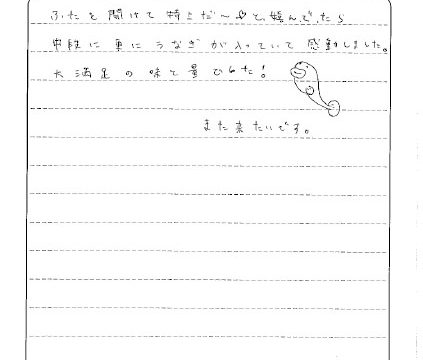 ふたを開けて特上だ〜♡と喜んでたら
中段に更にうなぎが入っていて感動しました。
大満足の味と量でした!
また来たいです。